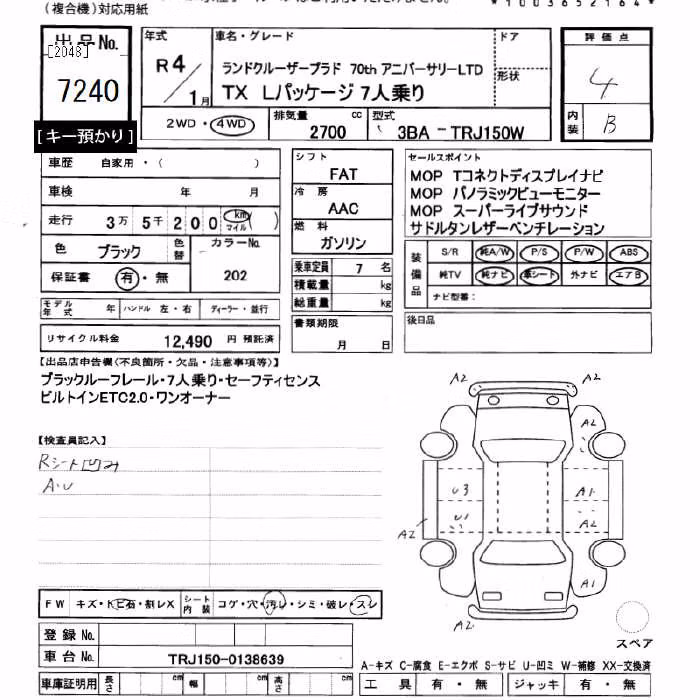 (複合機)対応用紙
*1003652164*
出品No.
[2048]
7240
[キー預かり]
年式
R4/1月
車名・グレード
ランドクルーザープラド 70th アニバーサリーLTD
TX Lパッケージ 7人乗り
ドア
形状
2WD・4WD
排気量
2700 cc
型式
3BA - TRJ150W
評価点
4
内装
B
車歴 自家用・( )
車検 年 月
走行 3万5千200 km マイル ( )
色 ブラック 色替
カラーNo.
202
保証書 有・無
モデル年式 年 ハンドル 左・右 ディーラー・並行
リサイクル料金 12,490 円 預託済
シフト
FAT
冷房
AAC
燃料
ガソリン
乗車定員 7 名
積載量 kg
総重量 kg
書類期限
月 日
セールスポイント
MOP Tコネクトディスプレイナビ
MOP パノラミックビューモニター
MOP スーパーライブサウンド
サドルタンレザーベンチレーション
装備品
S/R 純A/W P/S P/W ABS
純TV 純ナビ 革シート 外ナビ エアB
ナビ型番:
後日品
【出品店申告欄(不良箇所・欠品・注意事項等)】
ブラックルーフレール・7人乗り・セーフティセンス
ビルトインETC2.0・ワンオーナー
【検査員記入】
Rシート凹み
A・U
A2 A2
A2
U3 A1
U1 A2
A2
A1
A2
スペア
FW キズ・トビ石・割レX シート内装 コゲ・穴・汚レ・シミ・破レ・スレ
登録 No.
車台 No. TRJ150-0138639
車庫証明用 長さ cm 幅 cm 高さ cm
A-キズ C-腐食 E-エクボ S-サビ U-凹ミ W-補修 XX-交換済
工具 有・無 ジャッキ 有・無